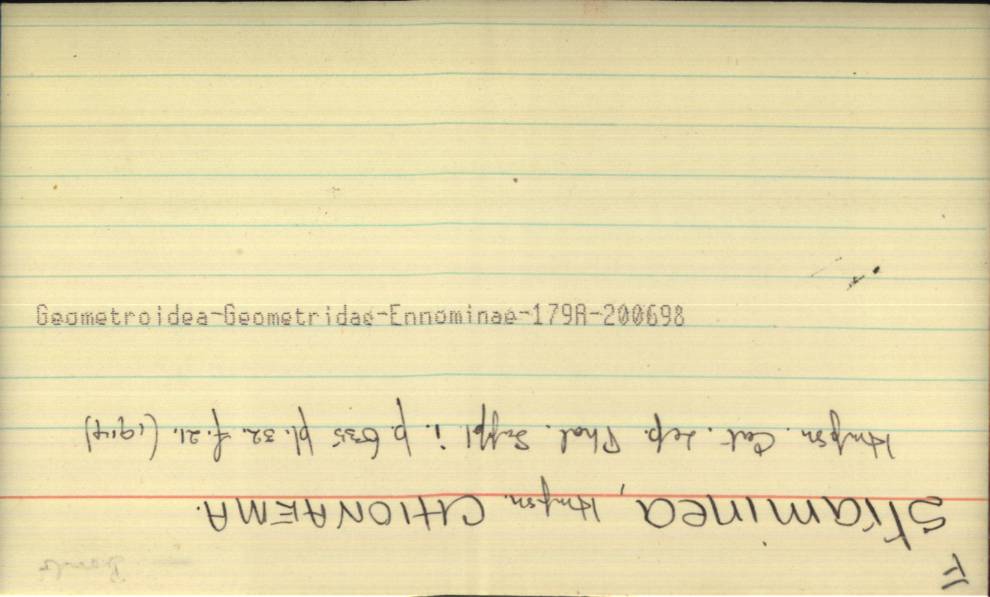 Geometroidea-Geometridae-Ennominae-179A-200698
F
straminea, Hmpsn. CHIONAEMA.
Hmpsn. Cat. Lep. Phal. Suppl. i. p. 635 pl. 32. f. 21. (1914)